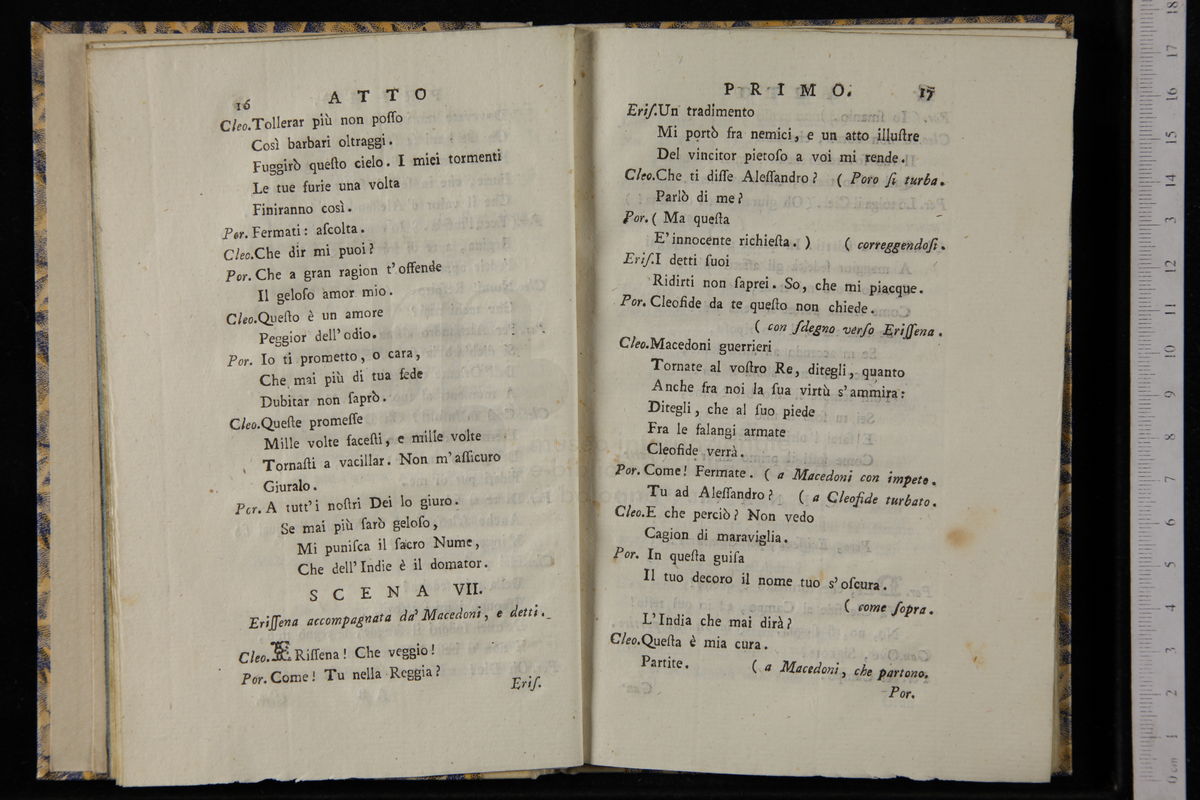 16 ATTO
Cleo.Tollerar più non poſſo
Così barbari oltraggi.
Fuggirò queſto cielo. I miei tormenti
Le tue furie una volta
Finiranno così.
Por. Fermati: aſcolta.
Cleo.Che dir mi puoi?
Por. Che a gran ragion t'offende
Il geloſo amor mio.
Cleo.Queſto è un amore
Peggior dell'odio.
Por. Io ti prometto, o cara,
Che mai più di tua fede
Dubitar non ſaprò.
Cleo.Queſte promeſſe
Mille volte faceſti, e mille volte
Tornaſti a vacillar. Non m'aſſicuro
Giuralo.
Por. A tutt'i noſtri Dei lo giuro.
Se mai più ſarò geloſo,
Mi puniſca il ſacro Nume,
Che dell'Indie è il domator.
SCENA VII.
Eriſſena accompagnata da' Macedoni, e detti.
Cleo.ERiſſena! Che veggio!
Por. Come! Tu nella Reggia?
Eriſ.
PRIMO. 17
Eriſ.Un tradimento
Mi portò fra nemici, e un atto illuſtre
Del vincitor pietoſo a voi mi rende.
Cleo.Che ti diſſe Aleſſandro? ( Poro ſi turba.
Parlò di me?
Por. ( Ma queſta
E' innocente richieſta. ) ( correggendoſi.
Eriſ.I detti ſuoi
Ridirti non ſaprei. So, che mi piacque.
Por. Cleofide da te queſto non chiede.
( con ſdegno verſo Eriſſena.
Cleo.Macedoni guerrieri
Tornate al voſtro Re, ditegli, quanto
Anche fra noi la ſua virtù s'ammira:
Ditegli, che al ſuo piede
Fra le falangi armate
Cleofide verrà.
Por. Come! Fermate. ( a Macedoni con impeto.
Tu ad Aleſſandro? ( a Cleofide turbato.
Cleo.E che perciò? Non vedo
Cagion di maraviglia.
Por. In queſta guiſa
Il tuo decoro il nome tuo s'oſcura.
( come ſopra.
L'India che mai dirà?
Cleo.Queſta è mia cura.
Partite. ( a Macedoni, che partono.
Por.